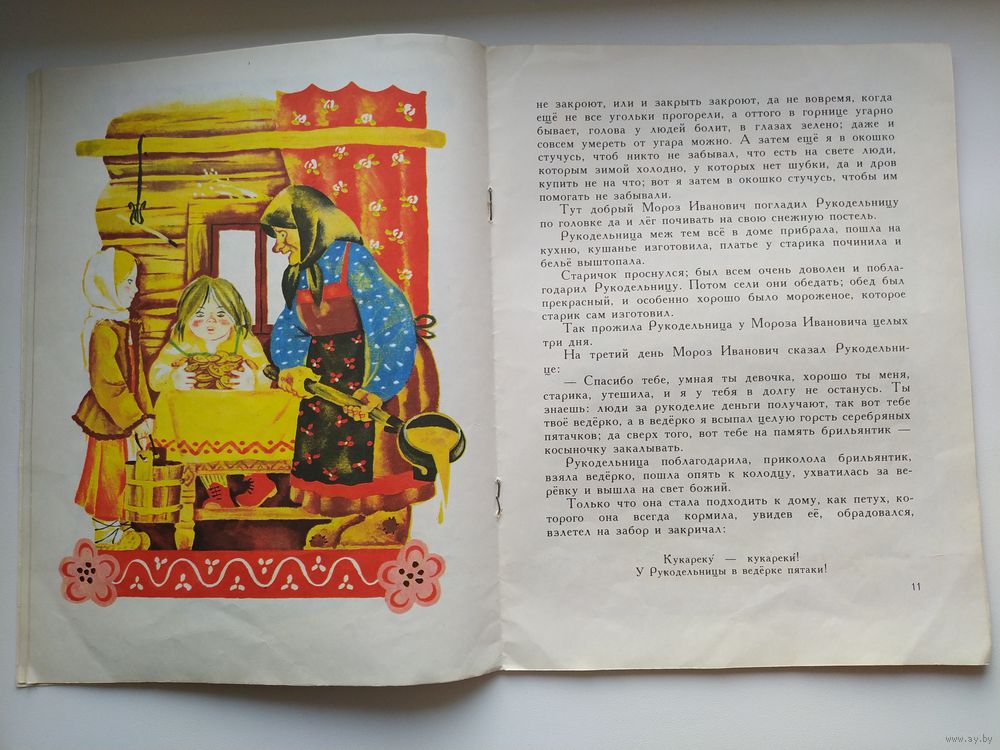 не закроют, или и закрыть закроют, да не вовремя, когда
ещё не все угольки прогорели, а оттого в горнице угарно
бывает, голова у людей болит, в глазах зелено; даже и
совсем умереть от угара можно. А затем ещё я в окошко
стучусь, чтоб никто не забывал, что есть на свете люди,
которым зимой холодно, у которых нет шубки, да и дров
купить не на что; вот я затем в окошко стучусь, чтобы им
помогать не забывали.
Тут добрый Мороз Иванович погладил Рукодельницу
по головке да и лёг почивать на свою снежную постель.
Рукодельница меж тем всё в доме прибрала, пошла на
кухню, кушанье изготовила, платье у старика починила и
бельё выштопала.
Старичок проснулся; был всем очень доволен и побла-
годарил Рукодельницу. Потом сели они обедать; обед был
прекрасный, и особенно хорошо было мороженое, которое
старик сам изготовил.
Так прожила Рукодельница у Мороза Ивановича целых
три дня.
На третий день Мороз Иванович сказал Рукодельни-
це:
— Спасибо тебе, умная ты девочка, хорошо ты меня,
старика, утешила, и я у тебя в долгу не останусь. Ты
знаешь: люди за рукоделие деньги получают, так вот тебе
твоё ведёрко, а в ведёрко я всыпал целую горсть серебряных
пятачков; да сверх того, вот тебе на память брильянтик —
косыночку закалывать.
Рукодельница поблагодарила, приколола брильянтик,
взяла ведёрко, пошла опять к колодцу, ухватилась за ве-
рёвку и вышла на свет божий.
Только что она стала подходить к дому, как петух, ко-
торого она всегда кормила, увидев её, обрадовался,
взлетел на забор и закричал:
Кукареку́ — кукареки́!
У Рукодельницы в ведёрке пятаки!
11
www.ay.by